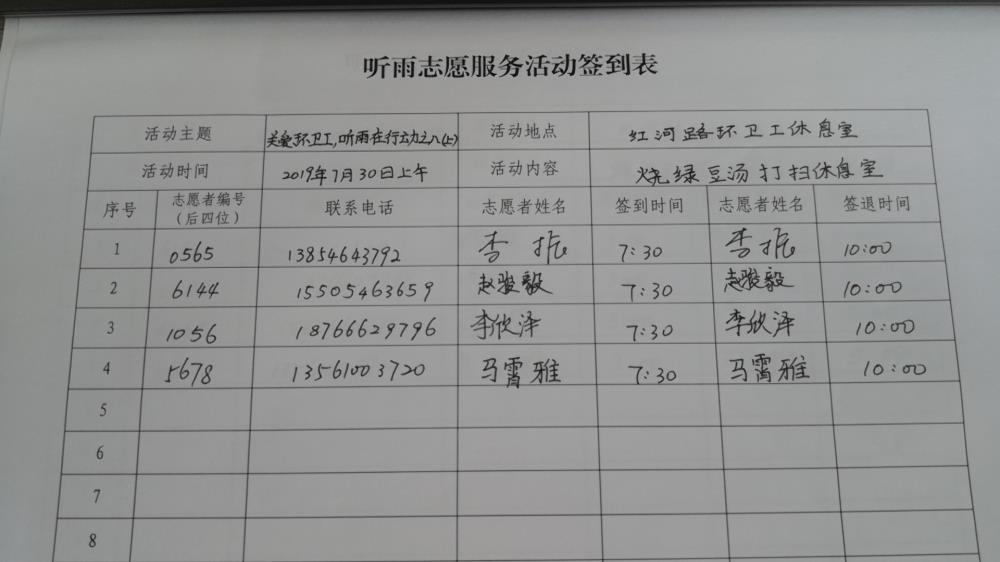 听雨志愿服务活动签到表
活动主题 关爱环卫工,听雨在行动之八(上) 活动地点 红河路环卫工休息室
活动时间 2019年7月30日上午 活动内容 烧绿豆汤打扫休息室
序号 志愿者编号（后四位） 联系电话 志愿者姓名 签到时间 志愿者姓名 签退时间
1 0565 13854643792 李振 7:30 李振 10:00
2 6144 15505463659 赵骏毅 7:30 赵骏毅 10:00
3 1056 18766629796 李欣泽 7:30 李欣泽 10:00
4 5678 13561003720 马霄雅 7:30 马霄雅 10:00
5
6
7
8